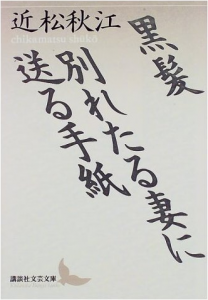 近松秋江
chikamatsu shūkō
黒髪
別れたる妻に
送る手紙
講談社文芸文庫